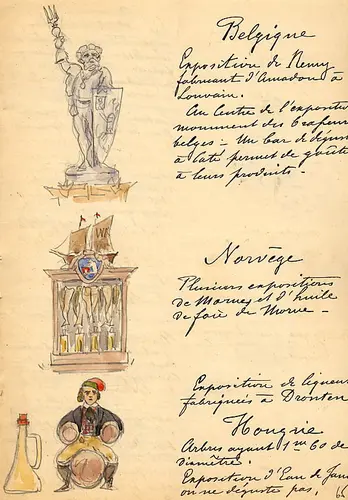 Belgique
Exposition de Remy
fabricant d'Amadou à
Louvain.
Au Centre de l'exposition
monument des brasseurs
belges – Un bar de dégus
à coté permet de goûte
à leurs produits –
Norvège
Plusieurs expositions
de Morues et d'huile
de foie de Morue –
Exposition de liqueu
fabriquées à Dronten
Hongrie
Arbres ayant 1m 60 de
diamètre.
Exposition d'Eau de Jan
on ne déguste pas.